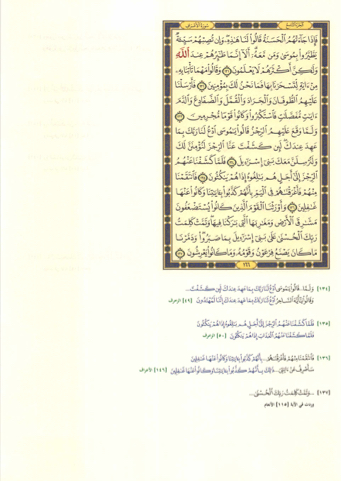 الجزء التاسع سورة الأعراف
فَإِذَا جَاءَتْهُمُ الْحَسَنَةُ قَالُوا لَنَا هَٰذِهِ وَإِن تُصِبْهُمْ سَيِّئَةٌ
يَطَّيَّرُوا بِمُوسَىٰ وَمَن مَّعَهُ أَلَا إِنَّمَا طَائِرُهُمْ عِندَ اللَّهِ
وَلَٰكِنَّ أَكْثَرَهُمْ لَا يَعْلَمُونَ ١٣١ وَقَالُوا مَهْمَا تَأْتِنَا بِهِ
مِنْ آيَةٍ لِّتَسْحَرَنَا بِهَا فَمَا نَحْنُ لَكَ بِمُؤْمِنِينَ ١٣٢ فَأَرْسَلْنَا
عَلَيْهِمُ الطُّوفَانَ وَالْجَرَادَ وَالْقُمَّلَ وَالضَّفَادِعَ وَالدَّمَ
آيَاتٍ مُّفَصَّلَاتٍ فَاسْتَكْبَرُوا وَكَانُوا قَوْمًا مُّجْرِمِينَ ١٣٣
وَلَمَّا وَقَعَ عَلَيْهِمُ الرِّجْزُ قَالُوا يَا مُوسَى ادْعُ لَنَا رَبَّكَ بِمَا
عَهِدَ عِندَكَ لَئِن كَشَفْتَ عَنَّا الرِّجْزَ لَنُؤْمِنَنَّ لَكَ
وَلَنُرْسِلَنَّ مَعَكَ بَنِي إِسْرَائِيلَ ١٣٤ فَلَمَّا كَشَفْنَا عَنْهُمُ
الرِّجْزَ إِلَىٰ أَجَلٍ هُم بَالِغُوهُ إِذَا هُمْ يَنكُثُونَ ١٣٥ فَانتَقَمْنَا
مِنْهُمْ فَأَغْرَقْنَاهُمْ فِي الْيَمِّ بِأَنَّهُمْ كَذَّبُوا بِآيَاتِنَا وَكَانُوا عَنْهَا
غَافِلِينَ ١٣٦ وَأَوْرَثْنَا الْقَوْمَ الَّذِينَ كَانُوا يُسْتَضْعَفُونَ
مَشَارِقَ الْأَرْضِ وَمَغَارِبَهَا الَّتِي بَارَكْنَا فِيهَا وَتَمَّتْ كَلِمَتُ
رَبِّكَ الْحُسْنَىٰ عَلَىٰ بَنِي إِسْرَائِيلَ بِمَا صَبَرُوا وَدَمَّرْنَا
مَا كَانَ يَصْنَعُ فِرْعَوْنُ وَقَوْمُهُ وَمَا كَانُوا يَعْرِشُونَ ١٣٧
١٦٦
[١٣٤] وَلَمَّا.. قَالُوا يَا مُوسَى ادْعُ لَنَا رَبَّكَ بِمَا عَهِدَ عِندَكَ لَئِن كَشَفْتَ...
وَقَالُوا يَا أَيُّهَ السَّاحِرُ ادْعُ لَنَا رَبَّكَ بِمَا عَهِدَ عِندَكَ إِنَّنَا لَمُهْتَدُونَ [٤٩] الزخرف
[١٣٥] فَلَمَّا كَشَفْنَا عَنْهُمُ الرِّجْزَ إِلَىٰ أَجَلٍ هُم بَالِغُوهُ إِذَا هُمْ يَنكُثُونَ
فَلَمَّا كَشَفْنَا عَنْهُمُ الْعَذَابَ إِذَا هُمْ يَنكُثُونَ [٥٠] الزخرف
[١٣٦] فَانتَقَمْنَا مِنْهُمْ فَأَغْرَقْنَاهُمْ.. بِأَنَّهُمْ كَذَّبُوا بِآيَاتِنَا وَكَانُوا عَنْهَا غَافِلِينَ
سَأَصْرِفُ عَنْ آيَاتِيَ.. ذَٰلِكَ بِأَنَّهُمْ كَذَّبُوا بِآيَاتِنَا وَكَانُوا عَنْهَا غَافِلِينَ [١٤٦] الأعراف
[١٣٧] ...وَتَمَّتْ كَلِمَتُ رَبِّكَ الْحُسْنَىٰ...
وردت في الآية [١١٥] الأنعام